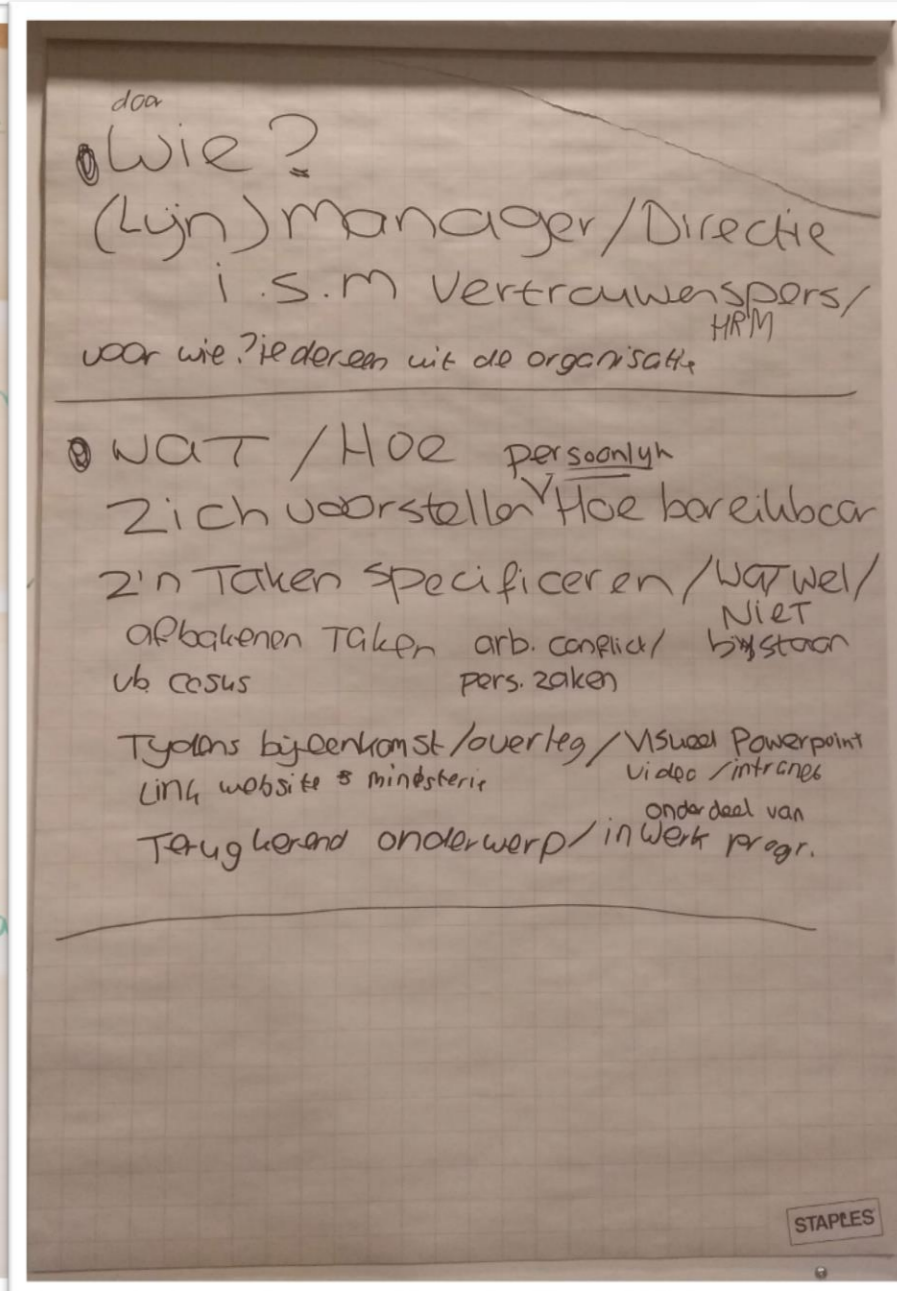 door
Wie?
(Lijn) manager/Directie
i.s.m vertrouwenspers/
HRM
voor wie? iedereen uit de organisatie
WAT / HOE persoonlyk
Zich voorstellen Hoe bereikbaar
z'n Taken specificeren / WAT wel/
NIET
afbakenen Taken arb. conflict/ bijstaan
vb casus pers. zaken
Tydens bijeenkomst/overleg / Visueel Powerpoint
Link website + ministerie video / intranet
onderdeel van
Terugkerend onderwerp / inwerk progr.
STAPLES